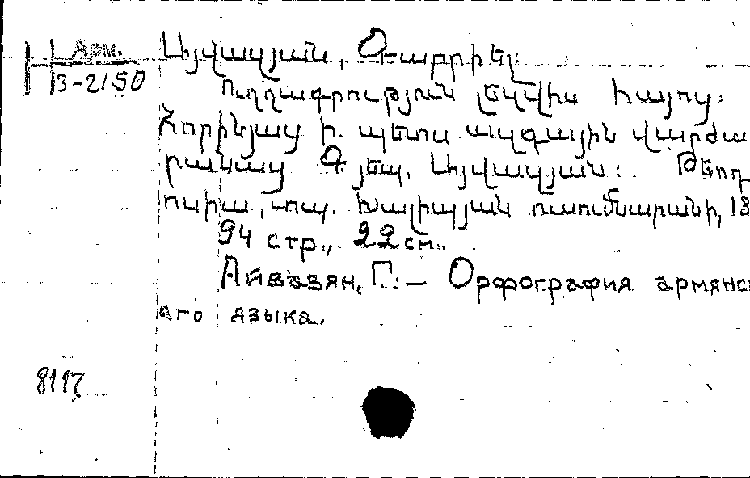 Арм.
3-2150
Այվազյան, Գաբրիել
Ուղղագրություն լեզվիս հայոց:
Հորինյաց ի պետս ազգային վարժա
րանաց Գ. Այվազյան: Թեոդ
ոսիա, տպ. Խալիպյան ուսումնարանի, 18
94 стр., 22 см.
Айвазян, Г. — Орфография армянск
аго языка.
811Հ